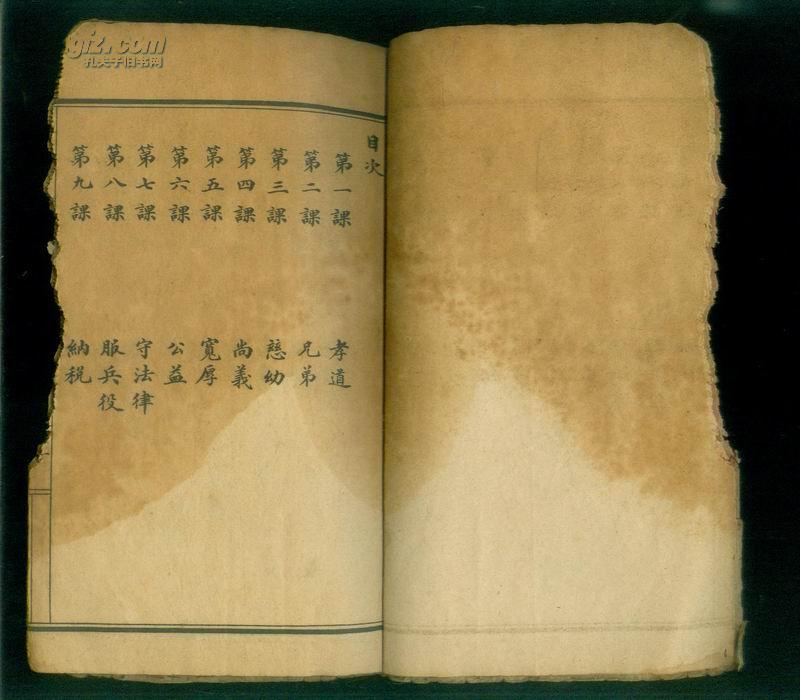 目次
第一課 孝道
第二課 兄弟
第三課 慈幼
第四課 尚義
第五課 寬厚
第六課 公益
第七課 守法律
第八課 服兵役
第九課 納稅
孔夫子旧书网